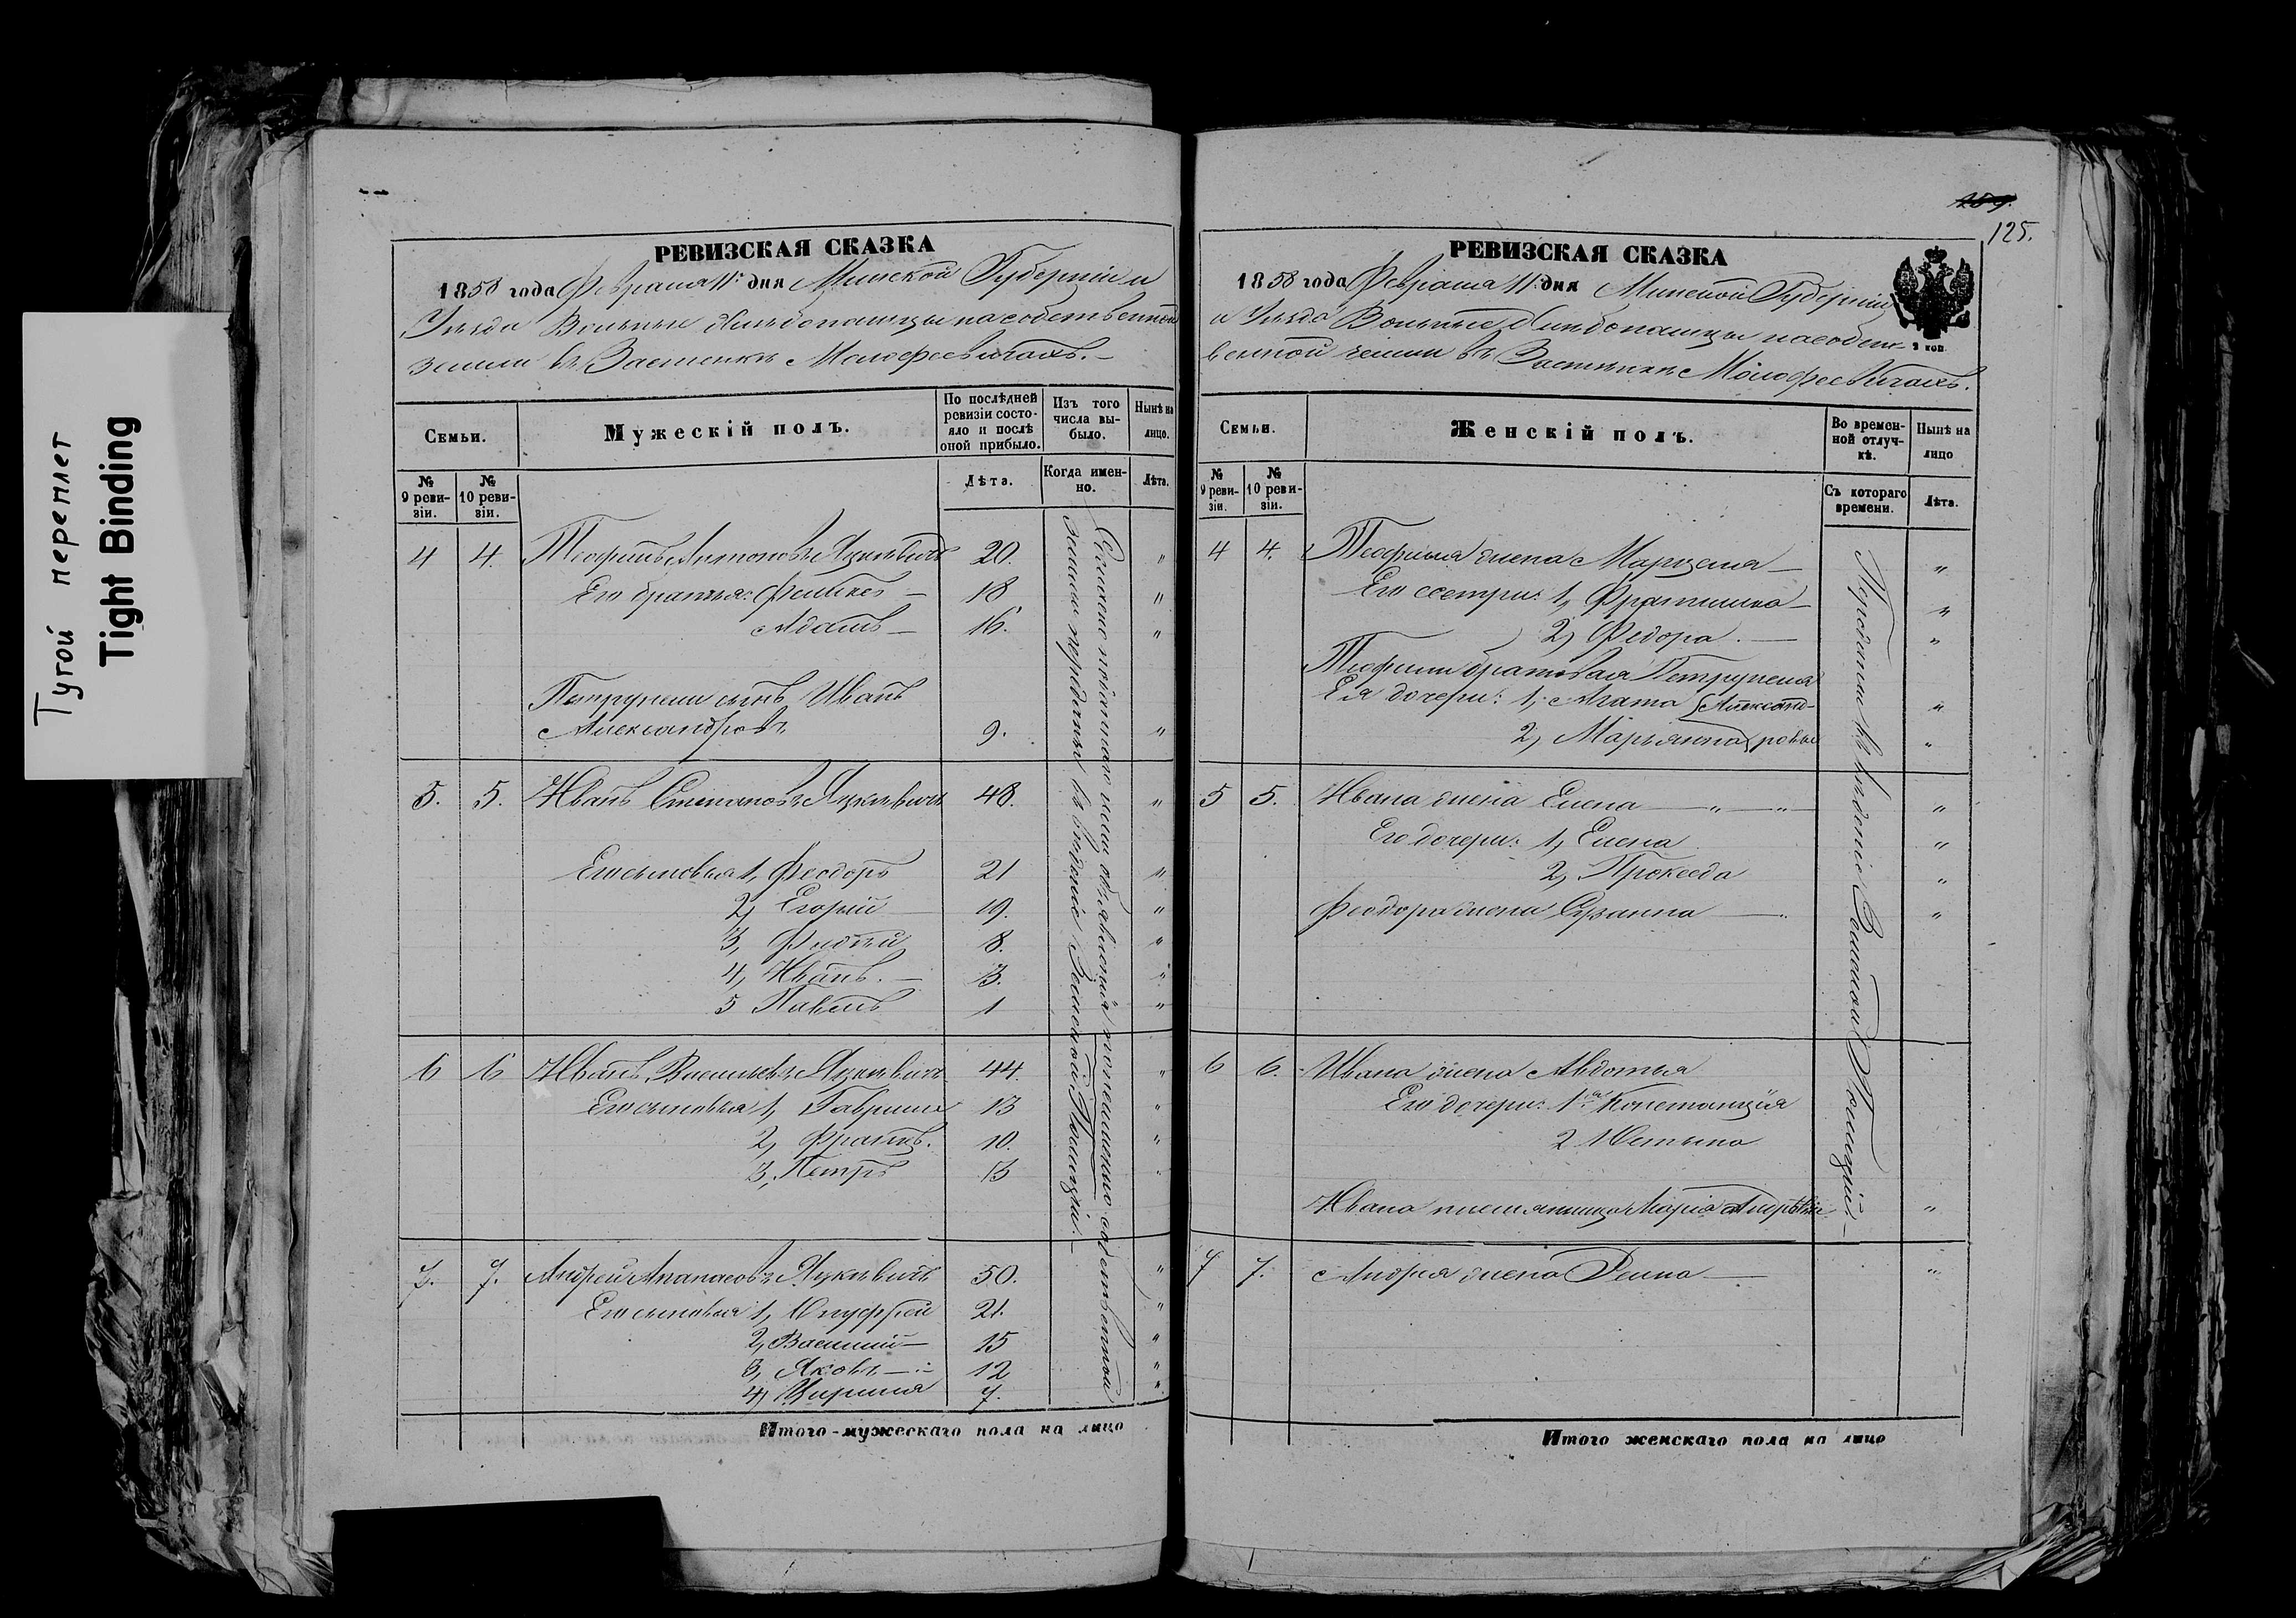 Тугой переплет
Tight Binding
РЕВИЗСКАЯ СКАЗКА
1858 года Февраля 11 дня Минской Губерніи и
Уѣзда Вольные Хлѣбопашцы на собственной
земли въ Застенкѣ
По послѣдней ревизіи состояло и послѣ оной прибыло.
Изъ того числа выбыло.
Нынѣ на лицо.
Семьи.
Мужескій полъ.
№ 9 ревизіи.
№ 10 ревизіи.
Лѣта.
Когда именно.
Лѣта.
4 4. Теофилъ Антоновъ Яцкевичъ 20. "
Его братья: Феликсъ — 18 "
Адамъ — 16. "
Петрунели сынъ Иванъ
Александровъ 9. "
5. 5. Иванъ Степановъ Яцкевичъ 48. "
Его сыновья 1, Феодоръ 21 "
2, Егорій — 19. "
3, 8. "
4, Иванъ. — 3. "
5 Павелъ 1 "
6 6 Иванъ Васильевъ Яцкевичъ 44. "
Его сыновья 1, Гаврила 13 "
2, Францъ. 10. "
3, Петръ "
7. 7. Андрей Апанасовъ Яцкевичъ 50. "
Его сыновья 1, Онуфрей 21. "
2, Василій — 15 "
3, Яковъ — 12 "
4, 7. "
земли передачи въ вѣденіе Земской Полиціи. —
Итого мужескаго пола на лицо
125.
РЕВИЗСКАЯ СКАЗКА
1858 года Февраля 11 дня Минской Губерніи
и Уѣзда Вольные Хлѣбопашцы на собст-
венной земли въ Застенкѣ
Семьи.
Женскій полъ.
Во временной отлучкѣ.
Нынѣ на лицо
№ 9 ревизіи.
№ 10 ревизіи.
Съ котораго времени.
Лѣта.
4 4. Теофила жена Марцеля — "
Его сестры: 1, "
2, Федора. — "
Теофили братовая Петрунеля
Ея дочери: 1, Агата Александ- "
2, Марьянна ровы "
5 5. Ивана жена Елена — " — " "
Его дочери: 1, Елена "
2, Прокседа "
Феодора жена Сузанна — "
6 6. Ивана жена Авдотья
Его дочери: 1ая Констанція
2 Юстына
Ивана племянница Марія "
7 7. Андрея жена — "
Итого женскаго пола на лицо